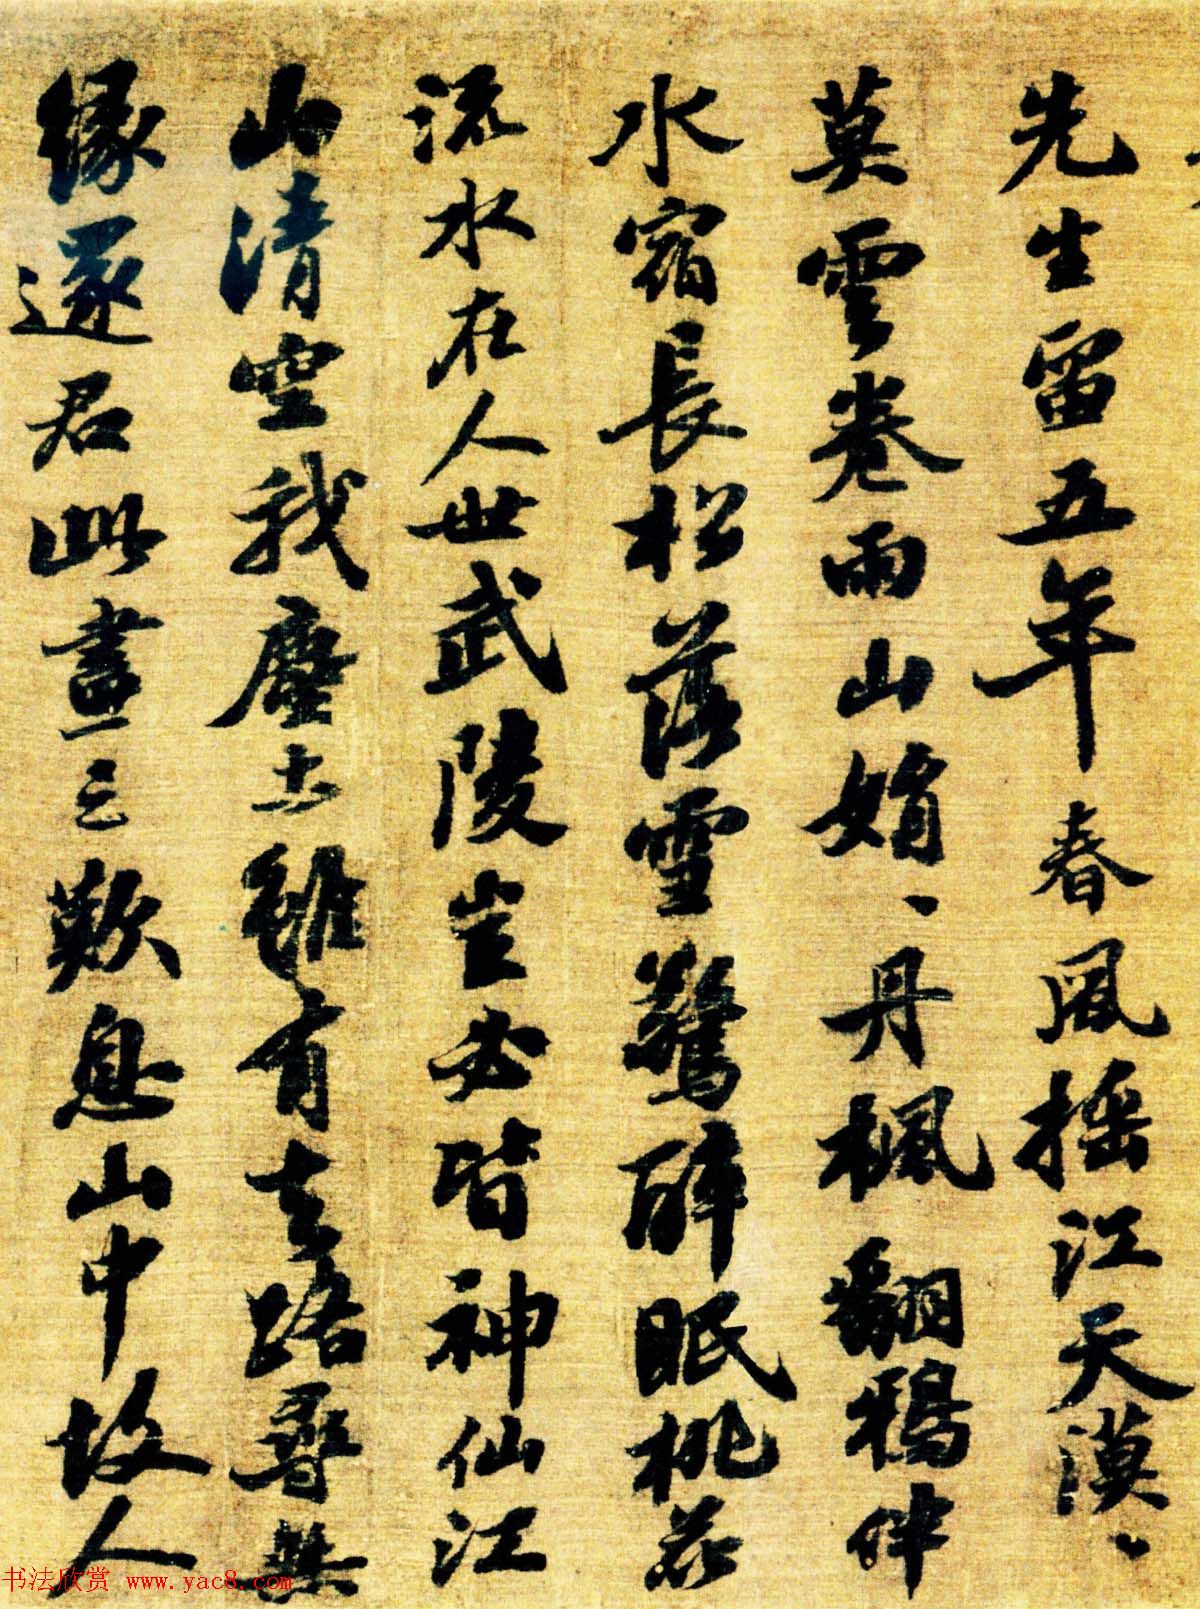 先生留五年春風搖江天漠、
莫雲卷雨山娟、丹楓翻鴉伴
水宿長松落雪驚醉眠桃花
流水在人世武陵豈必皆神仙江
山清空我塵土雖有去路尋無
緣還君此畫三歎息山中故人
书法欣赏 www.yac8.com